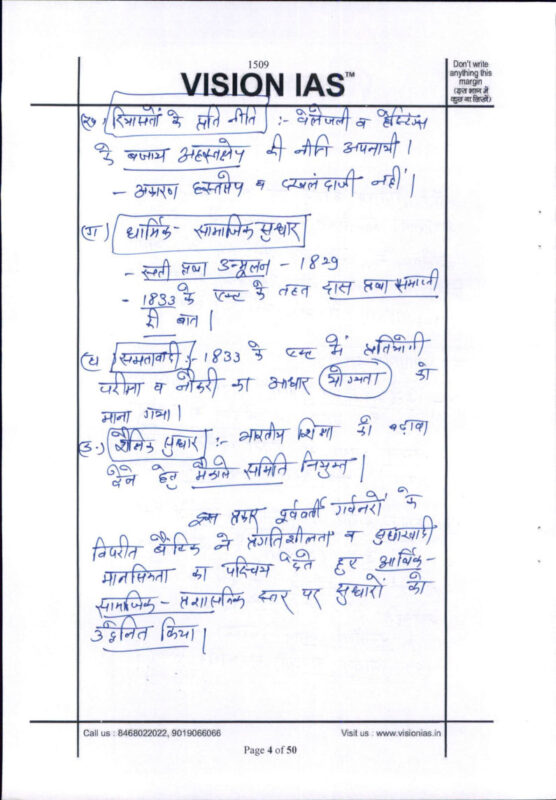 1509
VISION IAS™
Don't write
anything this
margin
(इस भाग में
कुछ ना लिखें)
(ख) रियासतों के प्रति नीति :- वेलेजली व हेस्टिंग्स
के बजाय अहस्तक्षेप की नीति अपनायी।
- अकारण हस्तक्षेप व दखलंदाजी नहीं।
(ग) धार्मिक- सामाजिक सुधार
- सती प्रथा उन्मूलन - 1829
- 1833 के एक्ट के तहत दास प्रथा समाप्ती
की बात।
(घ) समतावादी :- 1833 के एक्ट में प्रतियोगी
परीक्षा व नौकरी का आधार योग्यता को
माना गया।
(ङ) शैक्षिक सुधार :- भारतीय शिक्षा को बढ़ावा
देने हेतु मैकाले समिति नियुक्त।
इस प्रकार पूर्ववर्ती गर्वनरों के
विपरीत बैंटिक ने प्रगतिशीलता व सुधारवादी
मानसिकता का परिचय देते हुए आर्थिक-
सामाजिक- प्रशासनिक स्तर पर सुधारों को
किया।
Call us : 8468022022, 9019066066
Visit us : www.visionias.in
Page 4 of 50